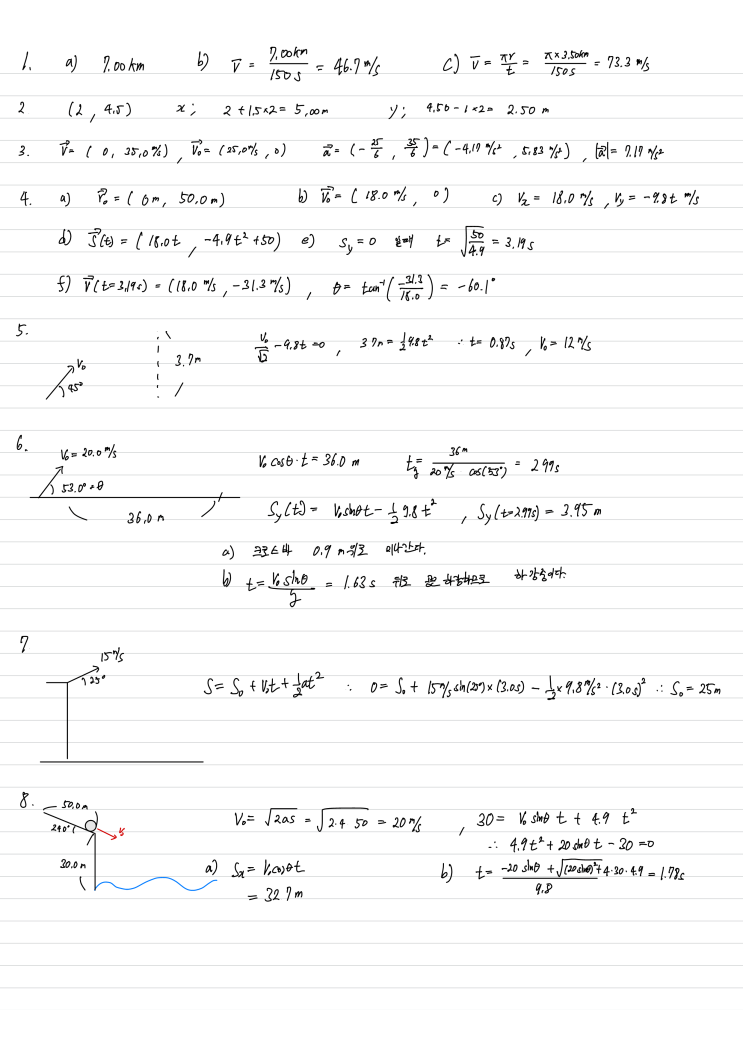 1. a) 7.00km b) v̅ = 7.00km / 150s = 46.7 m/s c) v̅ = πr / t = π×3.50km / 150s = 73.3 m/s
2 (2, 4.5) x; 2+1.5×2= 5.00m y; 4.50-1×2= 2.50 m
3. v⃗=(0, 35.0m/s), v⃗₀=(25.0m/s, 0) a⃗=(-25/6, 35/6)=(-4.17 m/s², 5.83 m/s²), |a⃗|= 7.17 m/s²
4. a) r⃗₀=(0m, 50.0m) b) v⃗₀=(18.0 m/s, 0) c) Vx = 18.0 m/s, Vy = -9.8t m/s
d) S⃗(t)=(18.0t, -4.9t²+50) e) Sy=0 일때 t=√(50/4.9) = 3.19s
f) v⃗(t=3.19s)=(18.0 m/s, -31.3 m/s), θ= tan⁻¹(-31.3/18.0) = -60.1°
5.
V₀
45°
3.7m
V₀/√2 - 9.8t=0, 3.7m=1/2 9.8t² ∴ t= 0.87s, V₀= 12m/s
6.
V₀=20.0m/s
53.0°=θ
36.0m
V₀ cosθ·t = 36.0 m t = 36m / 20m/s cos(53°) = 2.99s
Sy(t)= V₀sinθt - 1/2 9.8t², Sy(t=2.99s) = 3.95 m
a) 크로스바 0.9 m 위로 지나간다.
b) t= V₀ sinθ / g = 1.63 s 하강중이다.
7
15m/s
20°
S= S₀ + V₀t + 1/2 at² ∴ 0= S₀ + 15m/s sin(20°)×(3.0s) - 1/2 × 9.8m/s²·(3.0s)² ∴ S₀ = 25m
8.
50.0m
24.0°
30.0m
V₀= √2as = √2·4·50 = 20m/s, 30= V₀ sinθ t + 4.9 t²
∴ 4.9t²+20sinθt-30=0
a) Sx= V₀cosθt
= 32.7m
b) t= -20 sinθ + √(20sinθ)²+4·30·4.9 / 9.8 = 1.78s